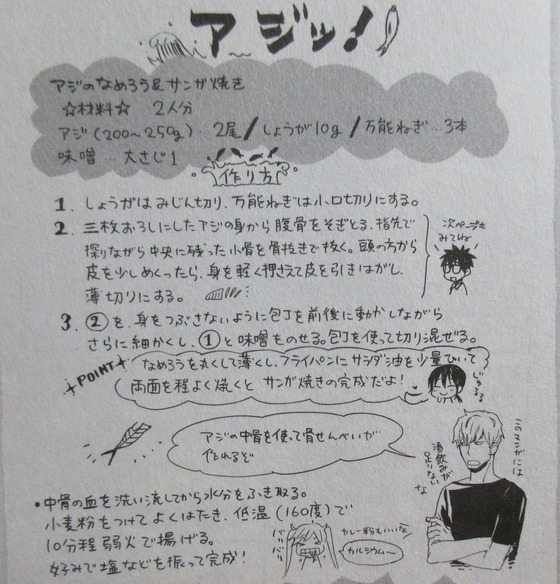 アジッ!
アジのなめろう&サンガ焼き
☆材料☆ 2人分
アジ(200〜250g)…2尾/しょうが10g/万能ねぎ…3本
味噌…大さじ1
作り方
1. しょうがはみじん切り、万能ねぎは小口切りにする。
2. 三枚おろしにしたアジの身から腹骨をそぎとる、指先で
探りながら中央に残った小骨を骨抜きで抜く。頭の方から
皮を少しめくったら、身を軽く押さえて皮を引きはがし、
薄切りにする。
次ページも
みてね
3. ②を、身をつぶさないように包丁を前後に動かしながら
さらに細かくし、①と味噌をのせる。包丁を使って切り混ぜる。
POINT
なめろうを丸くして薄くし、フライパンにサラダ油を少量ひいて
両面を程よく焼くとサンガ焼きの完成だよ!
じゅるる
アジの中骨を使って骨せんべいが
作れるぞ
このマンガには
酒飲みが
足りない
な
•中骨の血を洗い流してから水分をふき取る。
小麦粉をつけてよくはたき、低温(160度)で
10分程弱火で揚げる。
好みで塩などを振って完成!
バリバリ
カレー粉もいいな
カルシウム〜